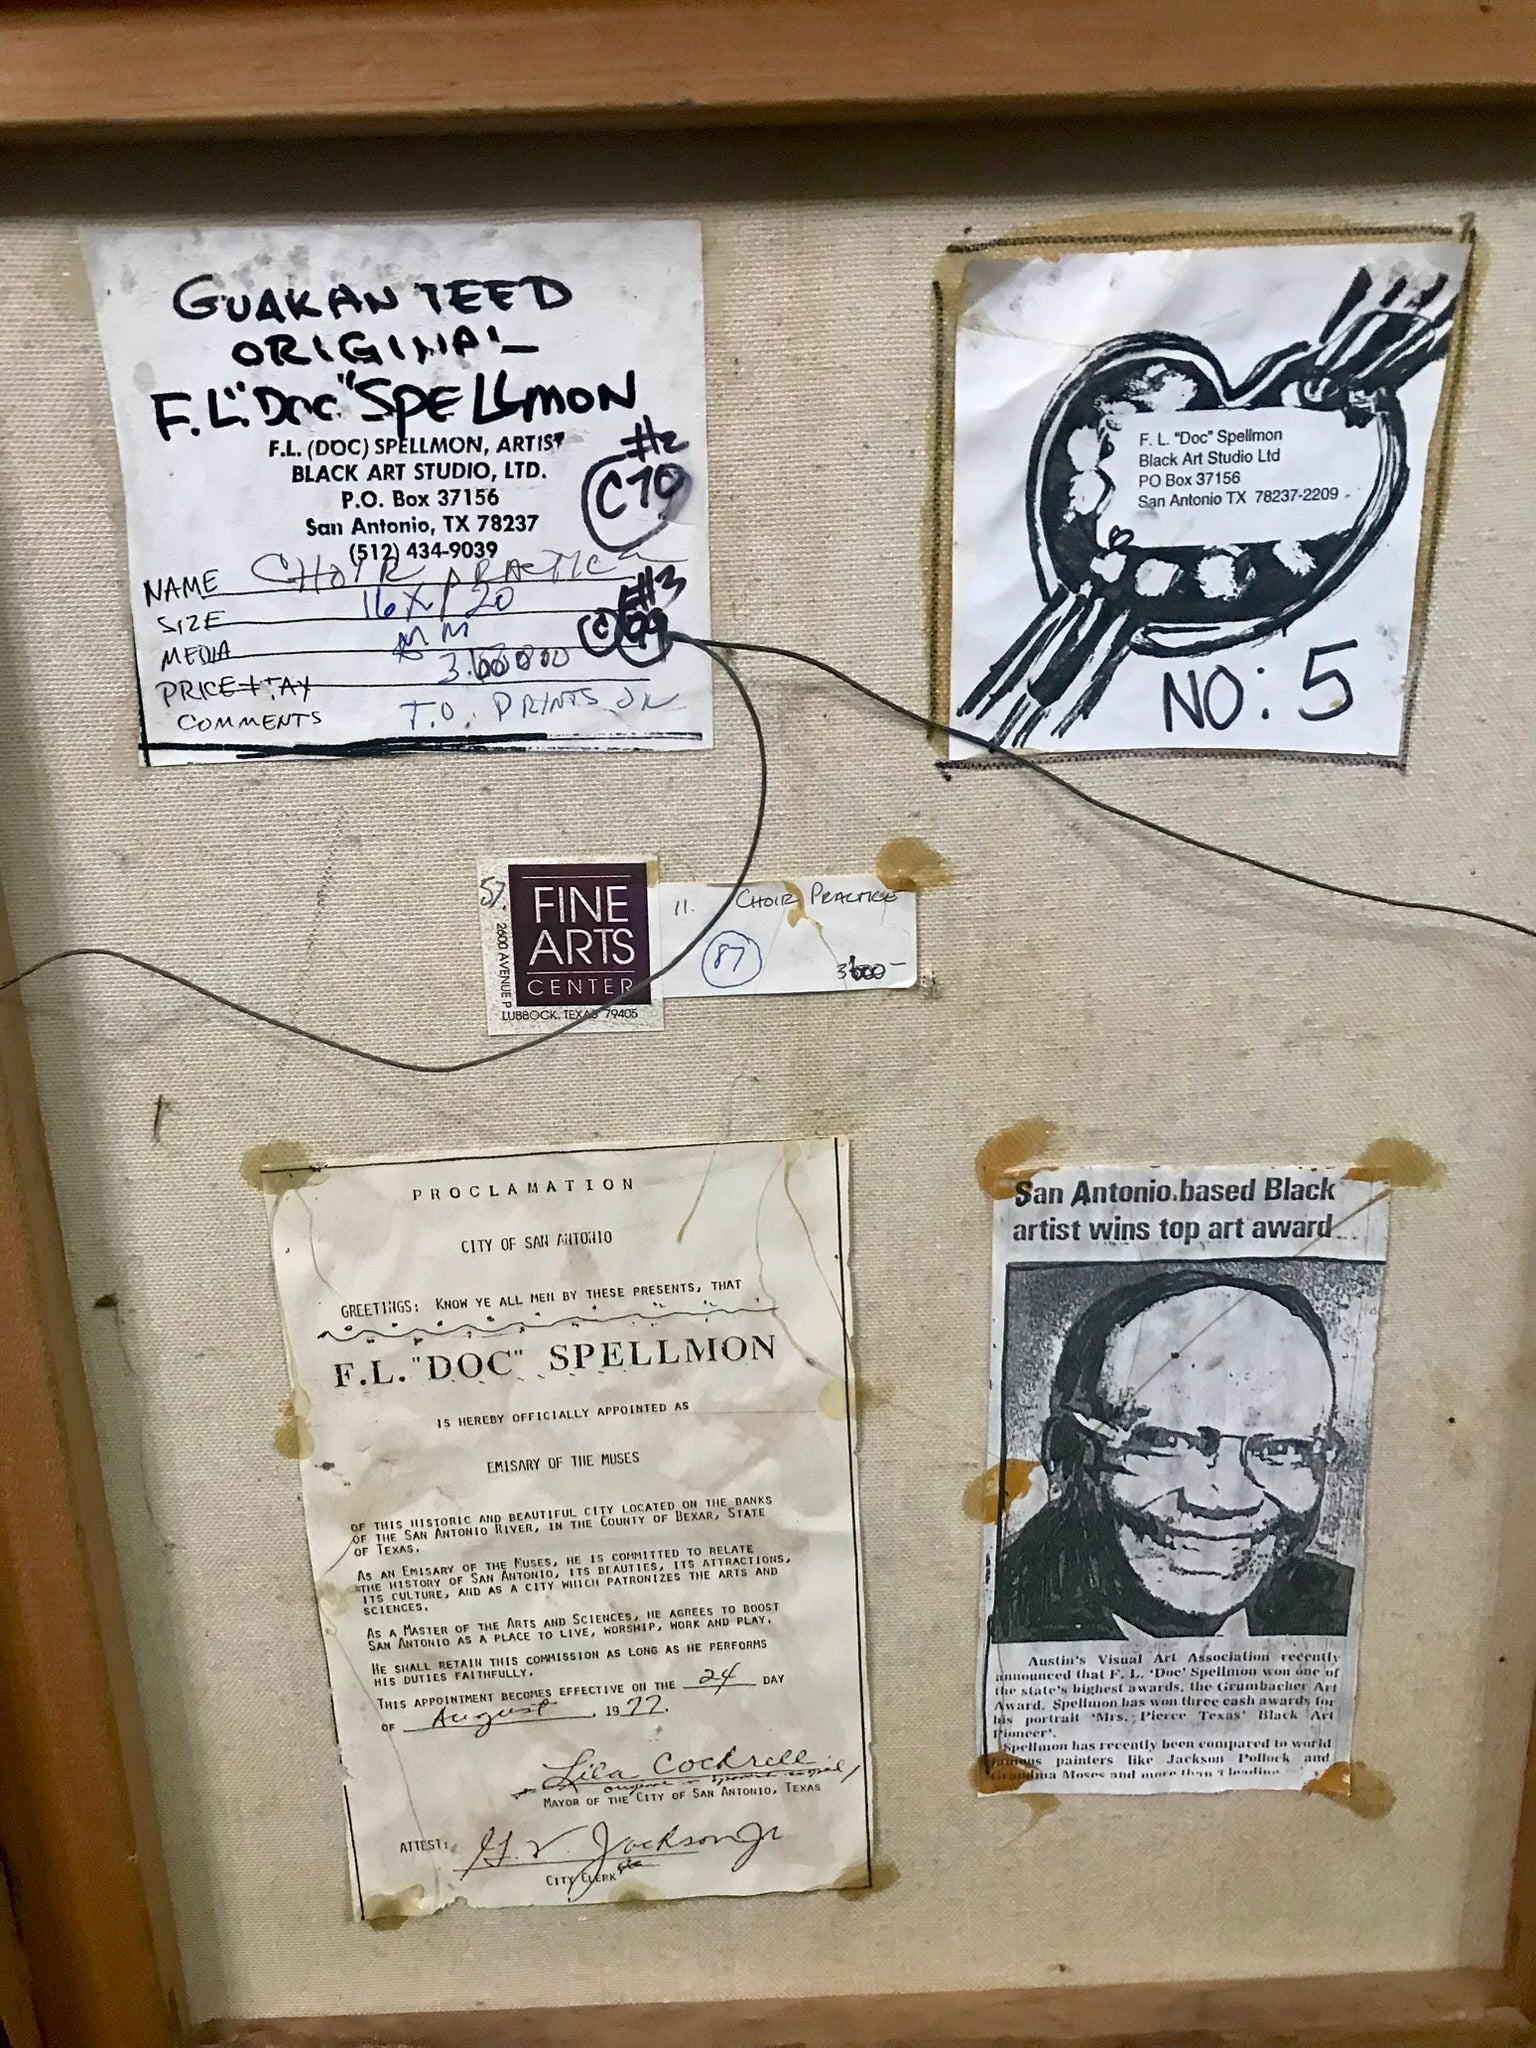 GUARANTEED
ORIGINAL
F.L. "DOC" SPELLMON
F.L. (DOC) SPELLMON, ARTIST
BLACK ART STUDIO, LTD.
P.O. Box 37156
San Antonio, TX 78237
(512) 434-9039
#2
C70
NAME CHOIR PRACTICE
SIZE 16 X 20
#3
MEDIA MM
© 99
PRICE + TAX
COMMENTS T.O. PRINTS ON
F. L. "Doc" Spellmon
Black Art Studio Ltd
PO Box 37156
San Antonio TX 78237-2209
NO: 5
57.
FINE
ARTS
CENTER
2600 AVENUE P
LUBBOCK, TEXAS 79405
11. CHOIR PRACTICE
87
PROCLAMATION
CITY OF SAN ANTONIO
GREETINGS: KNOW YE ALL MEN BY THESE PRESENTS, THAT
F.L. "DOC" SPELLMON
IS HEREBY OFFICIALLY APPOINTED AS
EMISARY OF THE MUSES
OF THIS HISTORIC AND BEAUTIFUL CITY LOCATED ON THE BANKS
OF THE SAN ANTONIO RIVER, IN THE COUNTY OF BEXAR, STATE
OF TEXAS.
AS AN EMISARY OF THE MUSES, HE IS COMMITTED TO RELATE
THE HISTORY OF SAN ANTONIO, ITS BEAUTIES, ITS ATTRACTIONS,
ITS CULTURE, AND AS A CITY WHICH PATRONIZES THE ARTS AND
SCIENCES.
AS A MASTER OF THE ARTS AND SCIENCES, HE AGREES TO BOOST
SAN ANTONIO AS A PLACE TO LIVE, WORSHIP, WORK AND PLAY.
HE SHALL RETAIN THIS COMMISSION AS LONG AS HE PERFORMS
HIS DUTIES FAITHFULLY.
THIS APPOINTMENT BECOMES EFFECTIVE ON THE 24 DAY
OF August, 1977.
Lila Cockrell
MAYOR OF THE CITY OF SAN ANTONIO, TEXAS
ATTEST: G. V. Jackson Jr
CITY CLERK
San Antonio-based Black
artist wins top art award
Austin's Visual Art Association recently
announced that F. L. 'Doc' Spellmon won one of
the state's highest awards, the Grumbacher Art
Award. Spellmon has won three cash awards for
his portrait 'Mrs. Pierce Texas' Black Art
Pioneer'.
Spellmon has recently been compared to world
famous painters like Jackson Pollock and
Grandma Moses and more than a leading